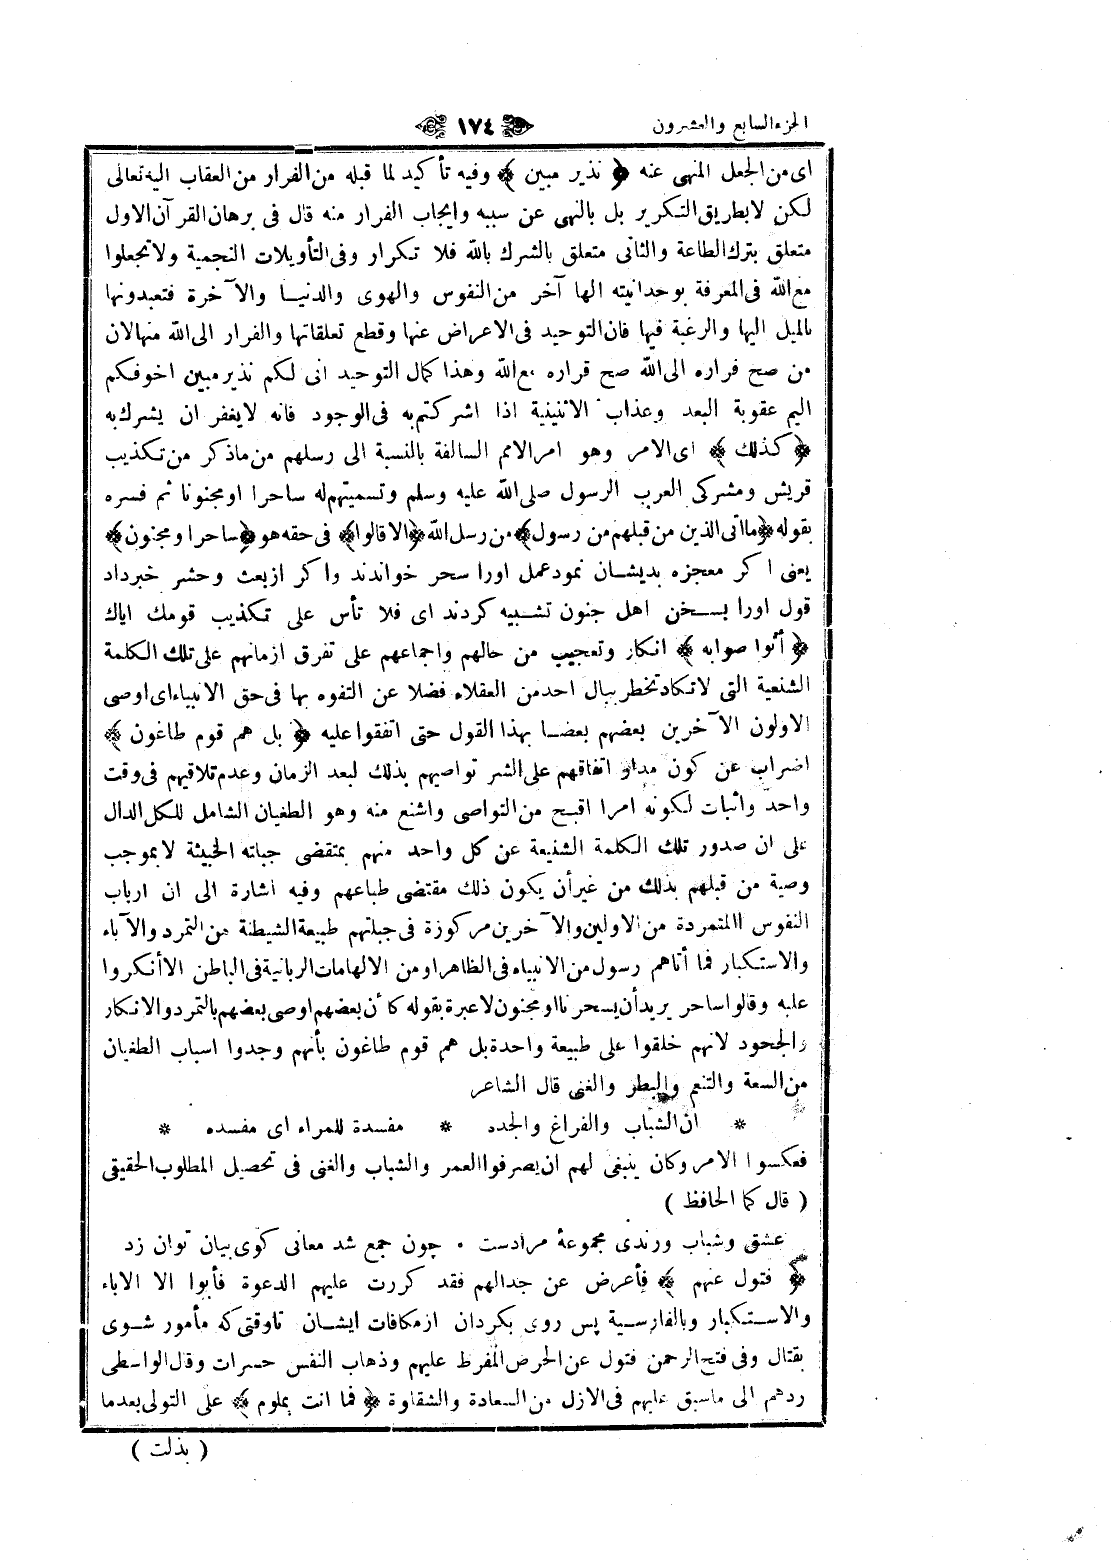 الجزء السابع والعشرون ١٧٤
اى من الجعل المنهى عنه ﴿ نذير مبين ﴾ وفيه تأكيد لما قبله من الفرار من العقاب اليه تعالى
لكن لا بطريق التكرير بل بالنهى عن سببه وايجاب الفرار منه قال فى برهان القرآن الاول
متعلق بترك الطاعة والثانى متعلق بالشرك بالله فلا تكرار وفى التأويلات النجمية ولا تجعلوا
مع الله فى المعرفة بوحدانيته الها آخر من النفوس والهوى والدنيا والآخرة فتعبدونها
بالميل اليها والرغبة فيها فان التوحيد فى الاعراض عنها وقطع تعلقاتها والفرار الى الله منها لان
من صح فراره الى الله صح قراره مع الله وهذا كمال التوحيد انى لكم نذير مبين اخوفكم
اليم عقوبة البعد وعذاب الاثنينية اذا اشركتم به فى الوجود فانه لا يغفر ان يشرك به
﴿ كذلك ﴾ اى الامر وهو امر الامم السالفة بالنسبة الى رسلهم من ماذكر من تكذيب
قريش ومشركى العرب الرسول صلى الله عليه وسلم وتسميتهم له ساحرا او مجنونا ثم فسره
بقوله ﴿ ما اتى الذين من قبلهم من رسول ﴾ من رسل الله ﴿ الا قالوا ﴾ فى حقه هو ﴿ ساحر او مجنون ﴾
يعنى اكر معجزه بديشان نمود عمل اورا سحر خواندند واكر ازبعث وحشر خبرداد
قول اورا بسخن اهل جنون تشبيه كردند اى فلا تأس على تكذيب قومك اياك
﴿ أتواصوا به ﴾ انكار وتعجيب من حالهم واجماعهم على تفرق ازمانهم على تلك الكلمة
الشنعية التى لا تكاد تخطر ببال احد من العقلاء فضلا عن التفوه بها فى حق الانبياء اى اوصى
الاولون الآخرين بعضهم بعضا بهذا القول حتى اتفقوا عليه ﴿ بل هم قوم طاغون ﴾
اضراب عن كون مدار اتفاقهم على الشر تواصيهم بذلك لبعد الزمان وعدم تلاقيهم فى وقت
واحد واثبات لكونه امرا اقبح من التواصى واشنع منه وهو الطغيان الشامل للكل الدال
على ان صدور تلك الكلمة الشنيعة عن كل واحد منهم بمتقضى جبلته الخبيثة لا بموجب
وصية من قبلهم بذلك من غير أن يكون ذلك مقتضى طباعهم وفيه اشارة الى ان ارباب
النفوس االمتمردة من الاولين والآخرين مركوزة فى جبلتهم طبيعة الشيطنة من التمرد والآباء
والاستكبار فما أتاهم رسول من الانبياء فى الظاهر او من الالهامات الربانية فى الباطن الا أنكروا
عليه وقالوا ساحر يريد أن يسحرنا او مجنون لاعبرة بقوله كأن بعضهم اوصى بعضهم بالتمرد والانكار
والجحود لانهم خلقوا على طبيعة واحدة بل هم قوم طاغون بأنهم وجدوا اسباب الطغيان
من السعة والتنعم والبطر والغنى قال الشاعر
* ان الشباب والفراغ والجده * مفسدة للمراء اى مفسده *
فعكسوا الامر وكان ينبغى لهم ان يصرفوا العمر والشباب والغنى فى تحصيل المطلوب الحقيقى
( قال كما الحافظ )
عشق وشباب ورندى مجموعۀ مرادست . چون جمع شد معانى كوى بيان توان زد
﴿ فتول عنهم ﴾ فأعرض عن جدالهم فقد كررت عليهم الدعوة فأبوا الا الاباء
والاستكبار وبالفارسية پس روى بكردان ازمكافات ايشان تاوقتى كه مأمور شوى
بقتال وفى فتح الرحمن فتول عن الحرص المفرط عليهم وذهاب النفس حسرات وقال الواسطى
ردهم الى ماسبق عليهم فى الازل من السعادة والشقاوة ﴿ فما انت بملوم ﴾ على التولى بعدما
( بذلت )